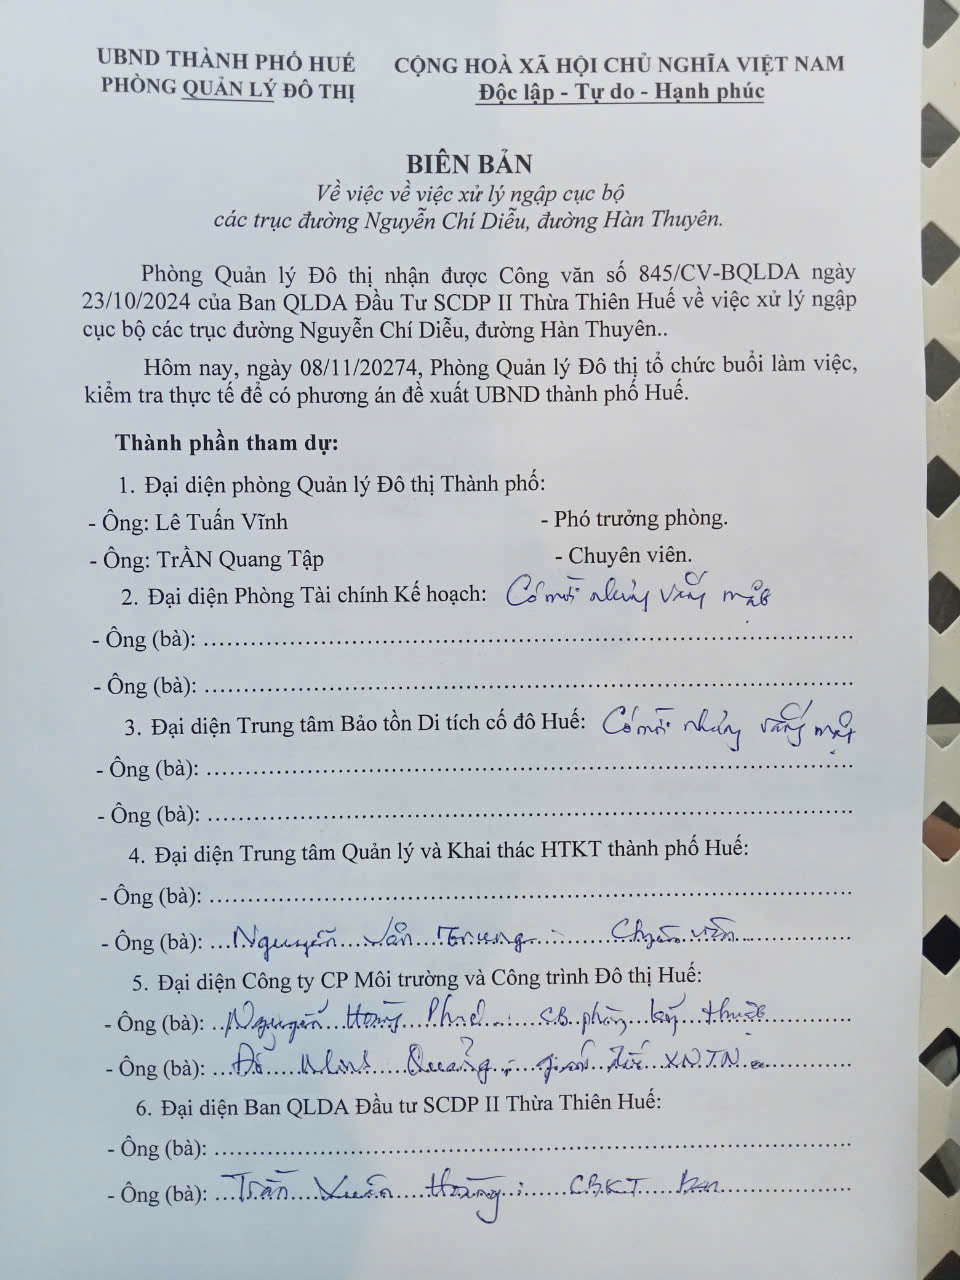 UBND THÀNH PHỐ HUẾ
PHÒNG QUẢN LÝ ĐÔ THỊ
CỘNG HOÀ XÃ HỘI CHỦ NGHĨA VIỆT NAM
Độc lập - Tự do - Hạnh phúc
BIÊN BẢN
Về việc về việc xử lý ngập cục bộ
các trục đường Nguyễn Chí Diễu, đường Hàn Thuyên.
Phòng Quản lý Đô thị nhận được Công văn số 845/CV-BQLDA ngày
23/10/2024 của Ban QLDA Đầu Tư SCDP II Thừa Thiên Huế về việc xử lý ngập
cục bộ các trục đường Nguyễn Chí Diễu, đường Hàn Thuyên..
Hôm nay, ngày 08/11/20274, Phòng Quản lý Đô thị tổ chức buổi làm việc,
kiểm tra thực tế để có phương án đề xuất UBND thành phố Huế.
Thành phần tham dự:
1. Đại diện phòng Quản lý Đô thị Thành phố:
- Ông: Lê Tuấn Vĩnh - Phó trưởng phòng.
- Ông: TrẦN Quang Tập - Chuyên viên.
2. Đại diện Phòng Tài chính Kế hoạch: Có mời nhưng vắng mặt
- Ông (bà): ........................
- Ông (bà): ........................
3. Đại diện Trung tâm Bảo tồn Di tích cố đô Huế: Có mời nhưng vắng mặt
- Ông (bà): ........................
- Ông (bà): ........................
4. Đại diện Trung tâm Quản lý và Khai thác HTKT thành phố Huế:
- Ông (bà): ........................
- Ông (bà): Nguyễn Văn Trung : Chuyên viên
5. Đại diện Công ty CP Môi trường và Công trình Đô thị Huế:
- Ông (bà): Nguyễn Hoàng : CB phòng kỹ thuật
- Ông (bà): Đỗ Quảng ; giám đốc XNTN
6. Đại diện Ban QLDA Đầu tư SCDP II Thừa Thiên Huế:
- Ông (bà): ........................
- Ông (bà): Trần Xuân Hoàng : CBKT Ban